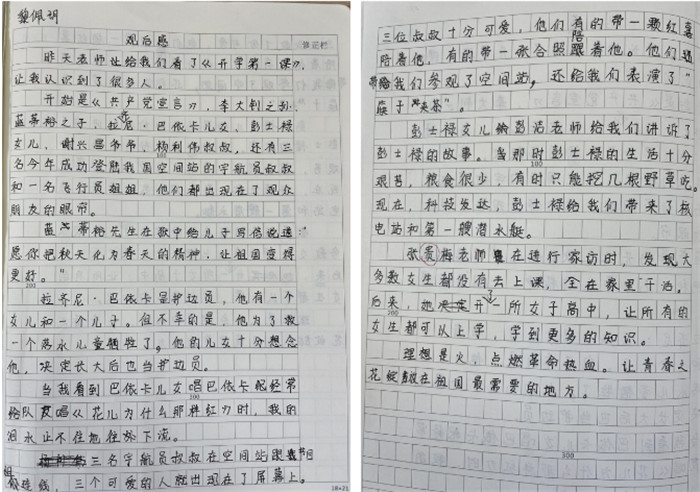 黎佩玥
观后感
昨天老师让给我们看了《开学第一课》,
让我认识到了很多人。
开始是《共产党宣言》,李大钊之孙、
蓝蒂裕之子,拉尼·巴依卡儿女、彭士禄
女儿、谢兴昌爷爷、杨利伟叔叔,还有三
名今年成功登陆我国空间站的宇航员叔叔
和一名飞行员姐姐,他们都出现在了观众
朋友的眼帘。
蓝蒂裕先生在歌中给儿子写信说道:
愿你把秋天化为春天的精神,让祖国变得
更好。"
拉齐尼·巴依卡是护边员,他有一个
女儿和一个儿子。但不幸的是,他为了救
一个落水儿童牺牲了。他的儿女十分想念
他,决定长大后也当护边员。
当我看到巴依卡儿女唱巴依卡経经常
给队友唱《花儿为什么那样红》时,我的
泪水止不住地往外下流。
三名宇航员叔叔在空间站跟节目
组连线,三个可爱的人就出现在了屏幕上。
18×21
三位叔叔十分可爱,他们有的带一颗红嘉
陪着他,有的带一张合照陪着他。他们
带给我们参观了空间站,还给我们表演了"
筷子"夹茶"。
彭士禄女儿彭洁老师给我们讲诉了
彭士禄的故事。当那时彭士禄的生活十分
艰苦,粮食很少,有时只能挖几根野草吃。
现在,科技发达,彭士禄给我们带来了核
电站和第一艘潜水艇。
张贵梅老师在进行家访时,发现大
多数女生都没有去上课,全在家里干活,
后来,她决定开一所女子高中,让所有的
女生都可以上学,学到更多的知识。
理想是火,点燃革命热血。让青春之
花绽放在祖国最需要的地方。
300